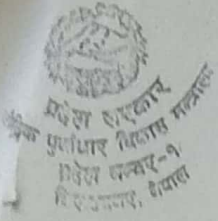 प्रदेश सरकार
पूर्वाधार विकास मन्त्रालय
प्रदेश नम्बर-१
विराटनगर, नेपाल